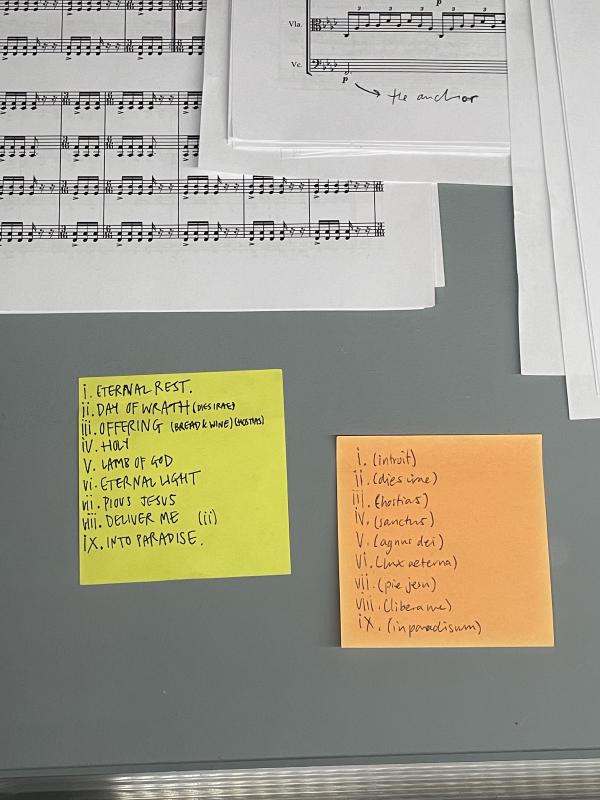 Vla.
Vc.
3 3 3 3
p
p
the anchor
i. ETERNAL REST.
ii. DAY OF WRATH (DIES IRAE)
iii. OFFERING (BREAD & WINE) (HOSTIAS)
iv. HOLY
v. LAMB OF GOD
vi. ETERNAL LIGHT
vii. PIOUS JESUS
viii. DELIVER ME (ii)
ix. INTO PARADISE.
i. (introit)
ii. (dies irae)
iii. (hostias)
iv. (sanctus)
v. (agnus dei)
vi. (lux aeterna)
vii. (pie jesu)
viii. (libera me)
ix. (in paradisum)